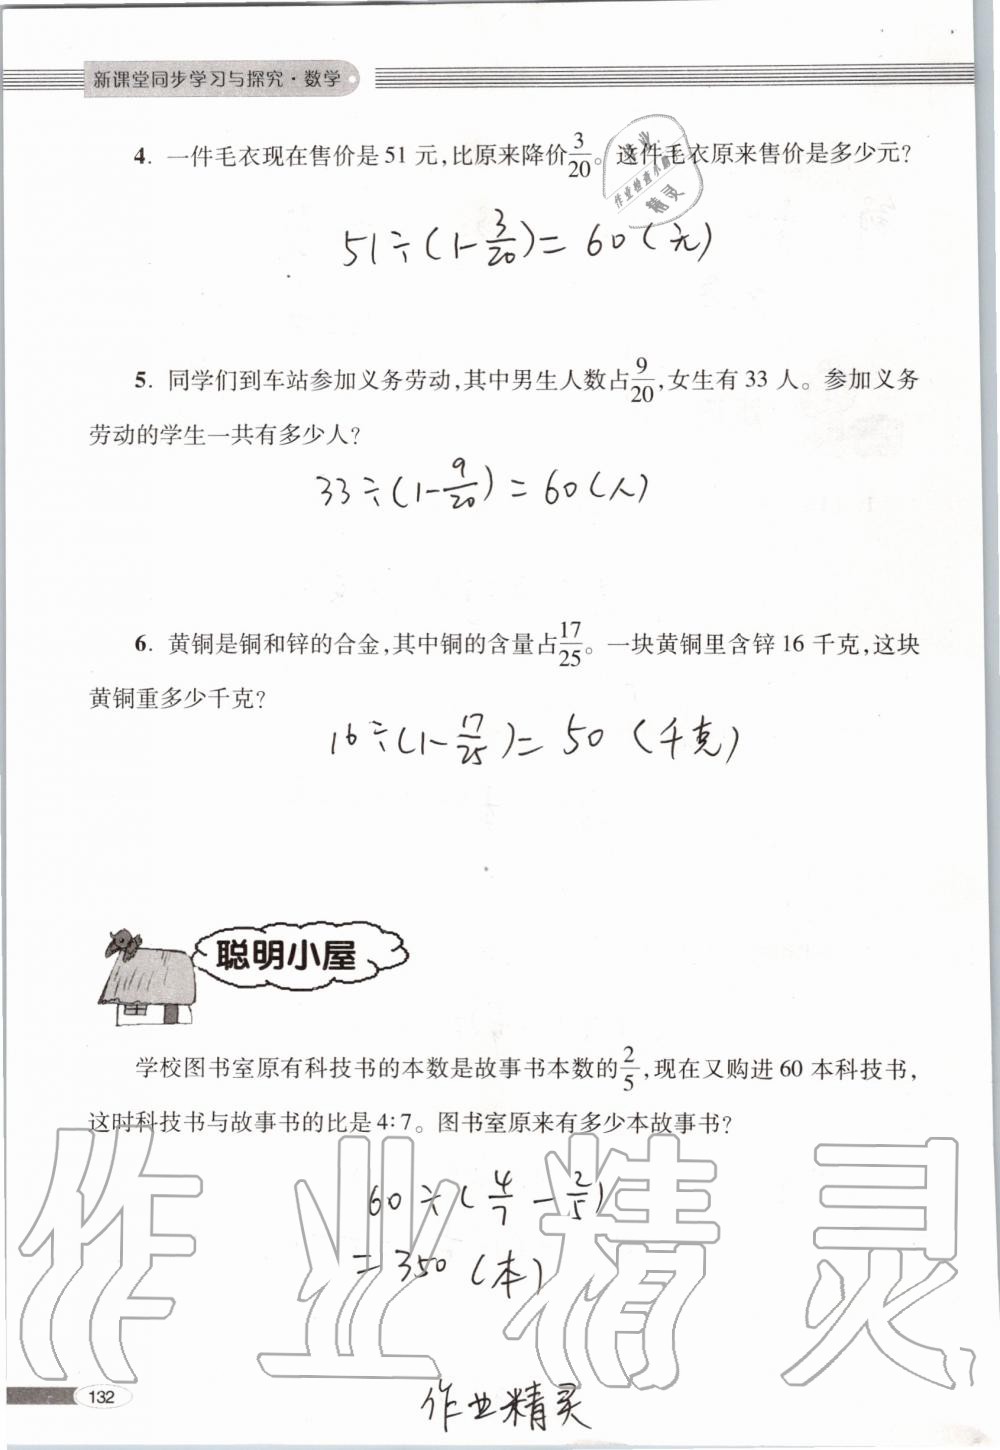 新课堂同步学习与探究·数学
4. 一件毛衣现在售价是51元,比原来降价3/20。这件毛衣原来售价是多少元?
作业
作业检查小助手
精灵
51÷(1-3/20)=60(元)
5. 同学们到车站参加义务劳动,其中男生人数占9/20,女生有33人。参加义务
劳动的学生一共有多少人?
33÷(1-9/20)=60(人)
6. 黄铜是铜和锌的合金,其中铜的含量占17/25。一块黄铜里含锌16千克,这块
黄铜重多少千克?
16÷(1-17/25)=50(千克)
聪明小屋
学校图书室原有科技书的本数是故事书本数的2/5,现在又购进60本科技书,
这时科技书与故事书的比是4:7。图书室原来有多少本故事书?
60÷(4/7-2/5)
=350(本)
作业精灵
132
作业精灵